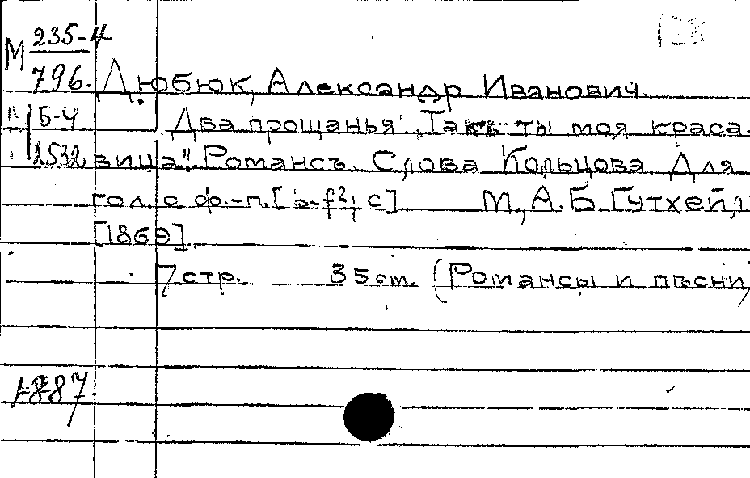 М 235-4
796. Дюбюк, Александр Иванович.
Б-4 Два прощанья „Такъ ты моя краса
1532 вица". Романсъ. Слова Кольцова Для
гол. с ф.-п. М., А.Б. Гутхейл,
[1869].
7 стр. 35 cm. (Романсы и пѣсни
1887